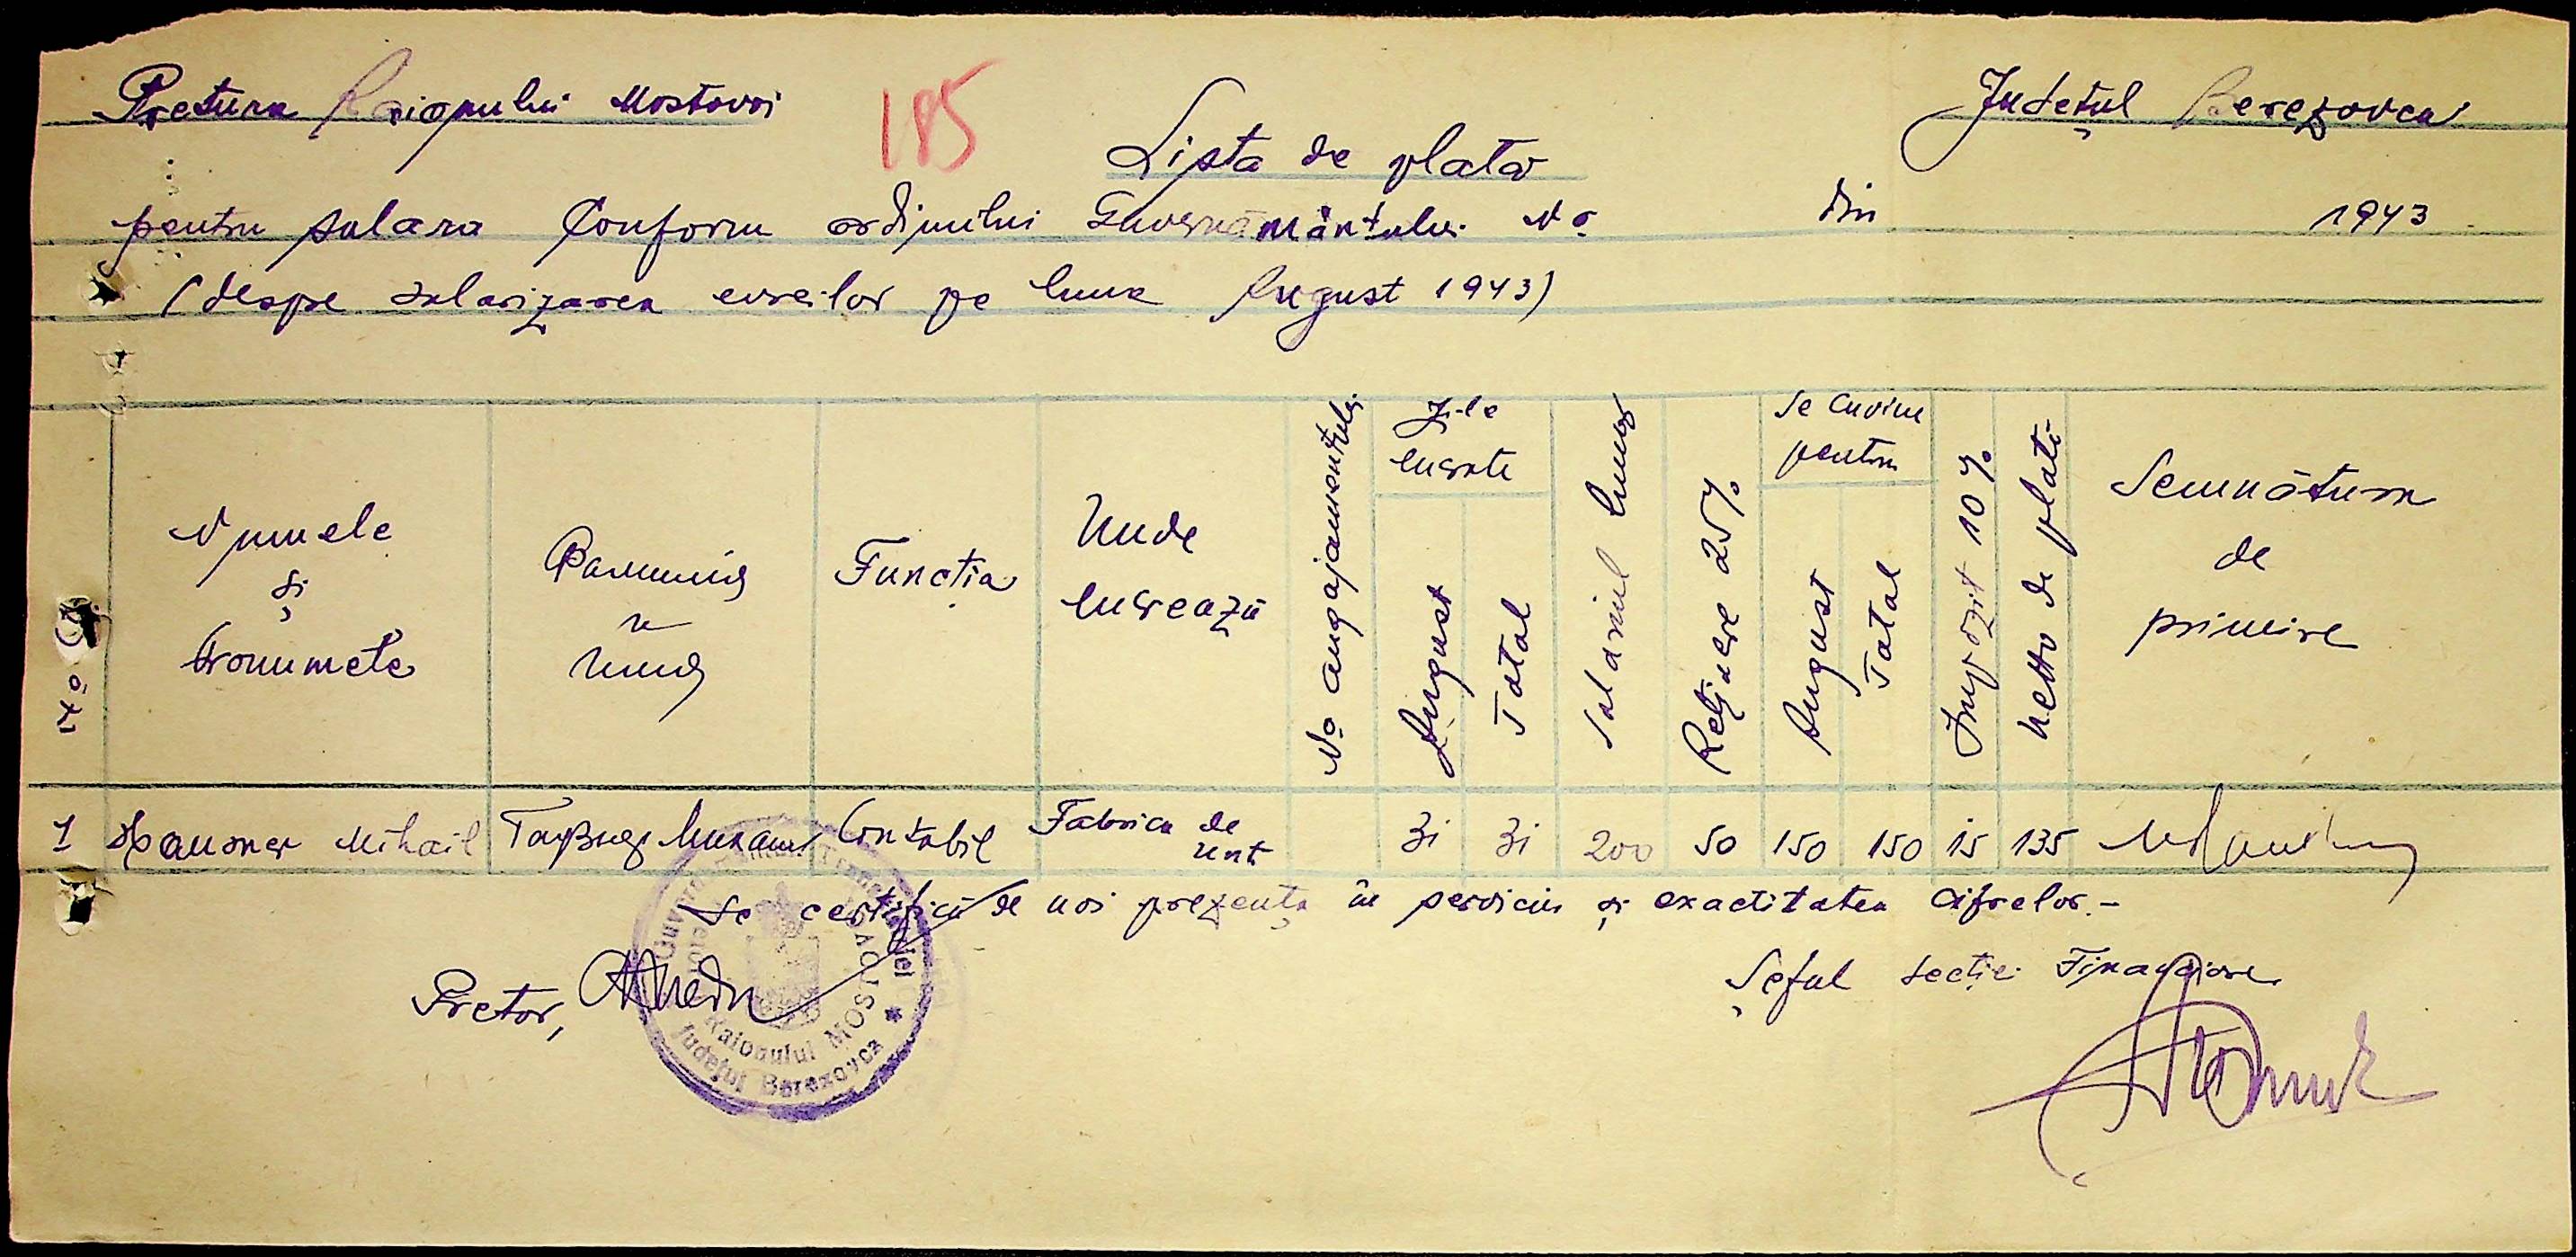 Pretura Raionului Mostovoi
185
Județul Berezovca
Lista de plata
pentru salara Conform ordinului Guvernământului No din 1943
(despre salarizarea evreilor pe luna August 1943)
No
Numele
și
Pronumele
Фамилия
и
имя
Funcția
Unde
lucrează
No angajamentului
Zile
lucrate
August
Total
Salariul lunar
Reținere 25%
Se cuvine
pentru
August
Total
Impozit 10%
netto de plată
Semnătura
de
primire
1 Hausner Mihail Contabil Fabrica de unt 31 31 200 50 150 150 15 135
Se certifică de noi prezența în serviciu și exactitatea cifrelor.-
Pretor,
Șeful secție Financiare
Raionului MOS
Județul Berezovca